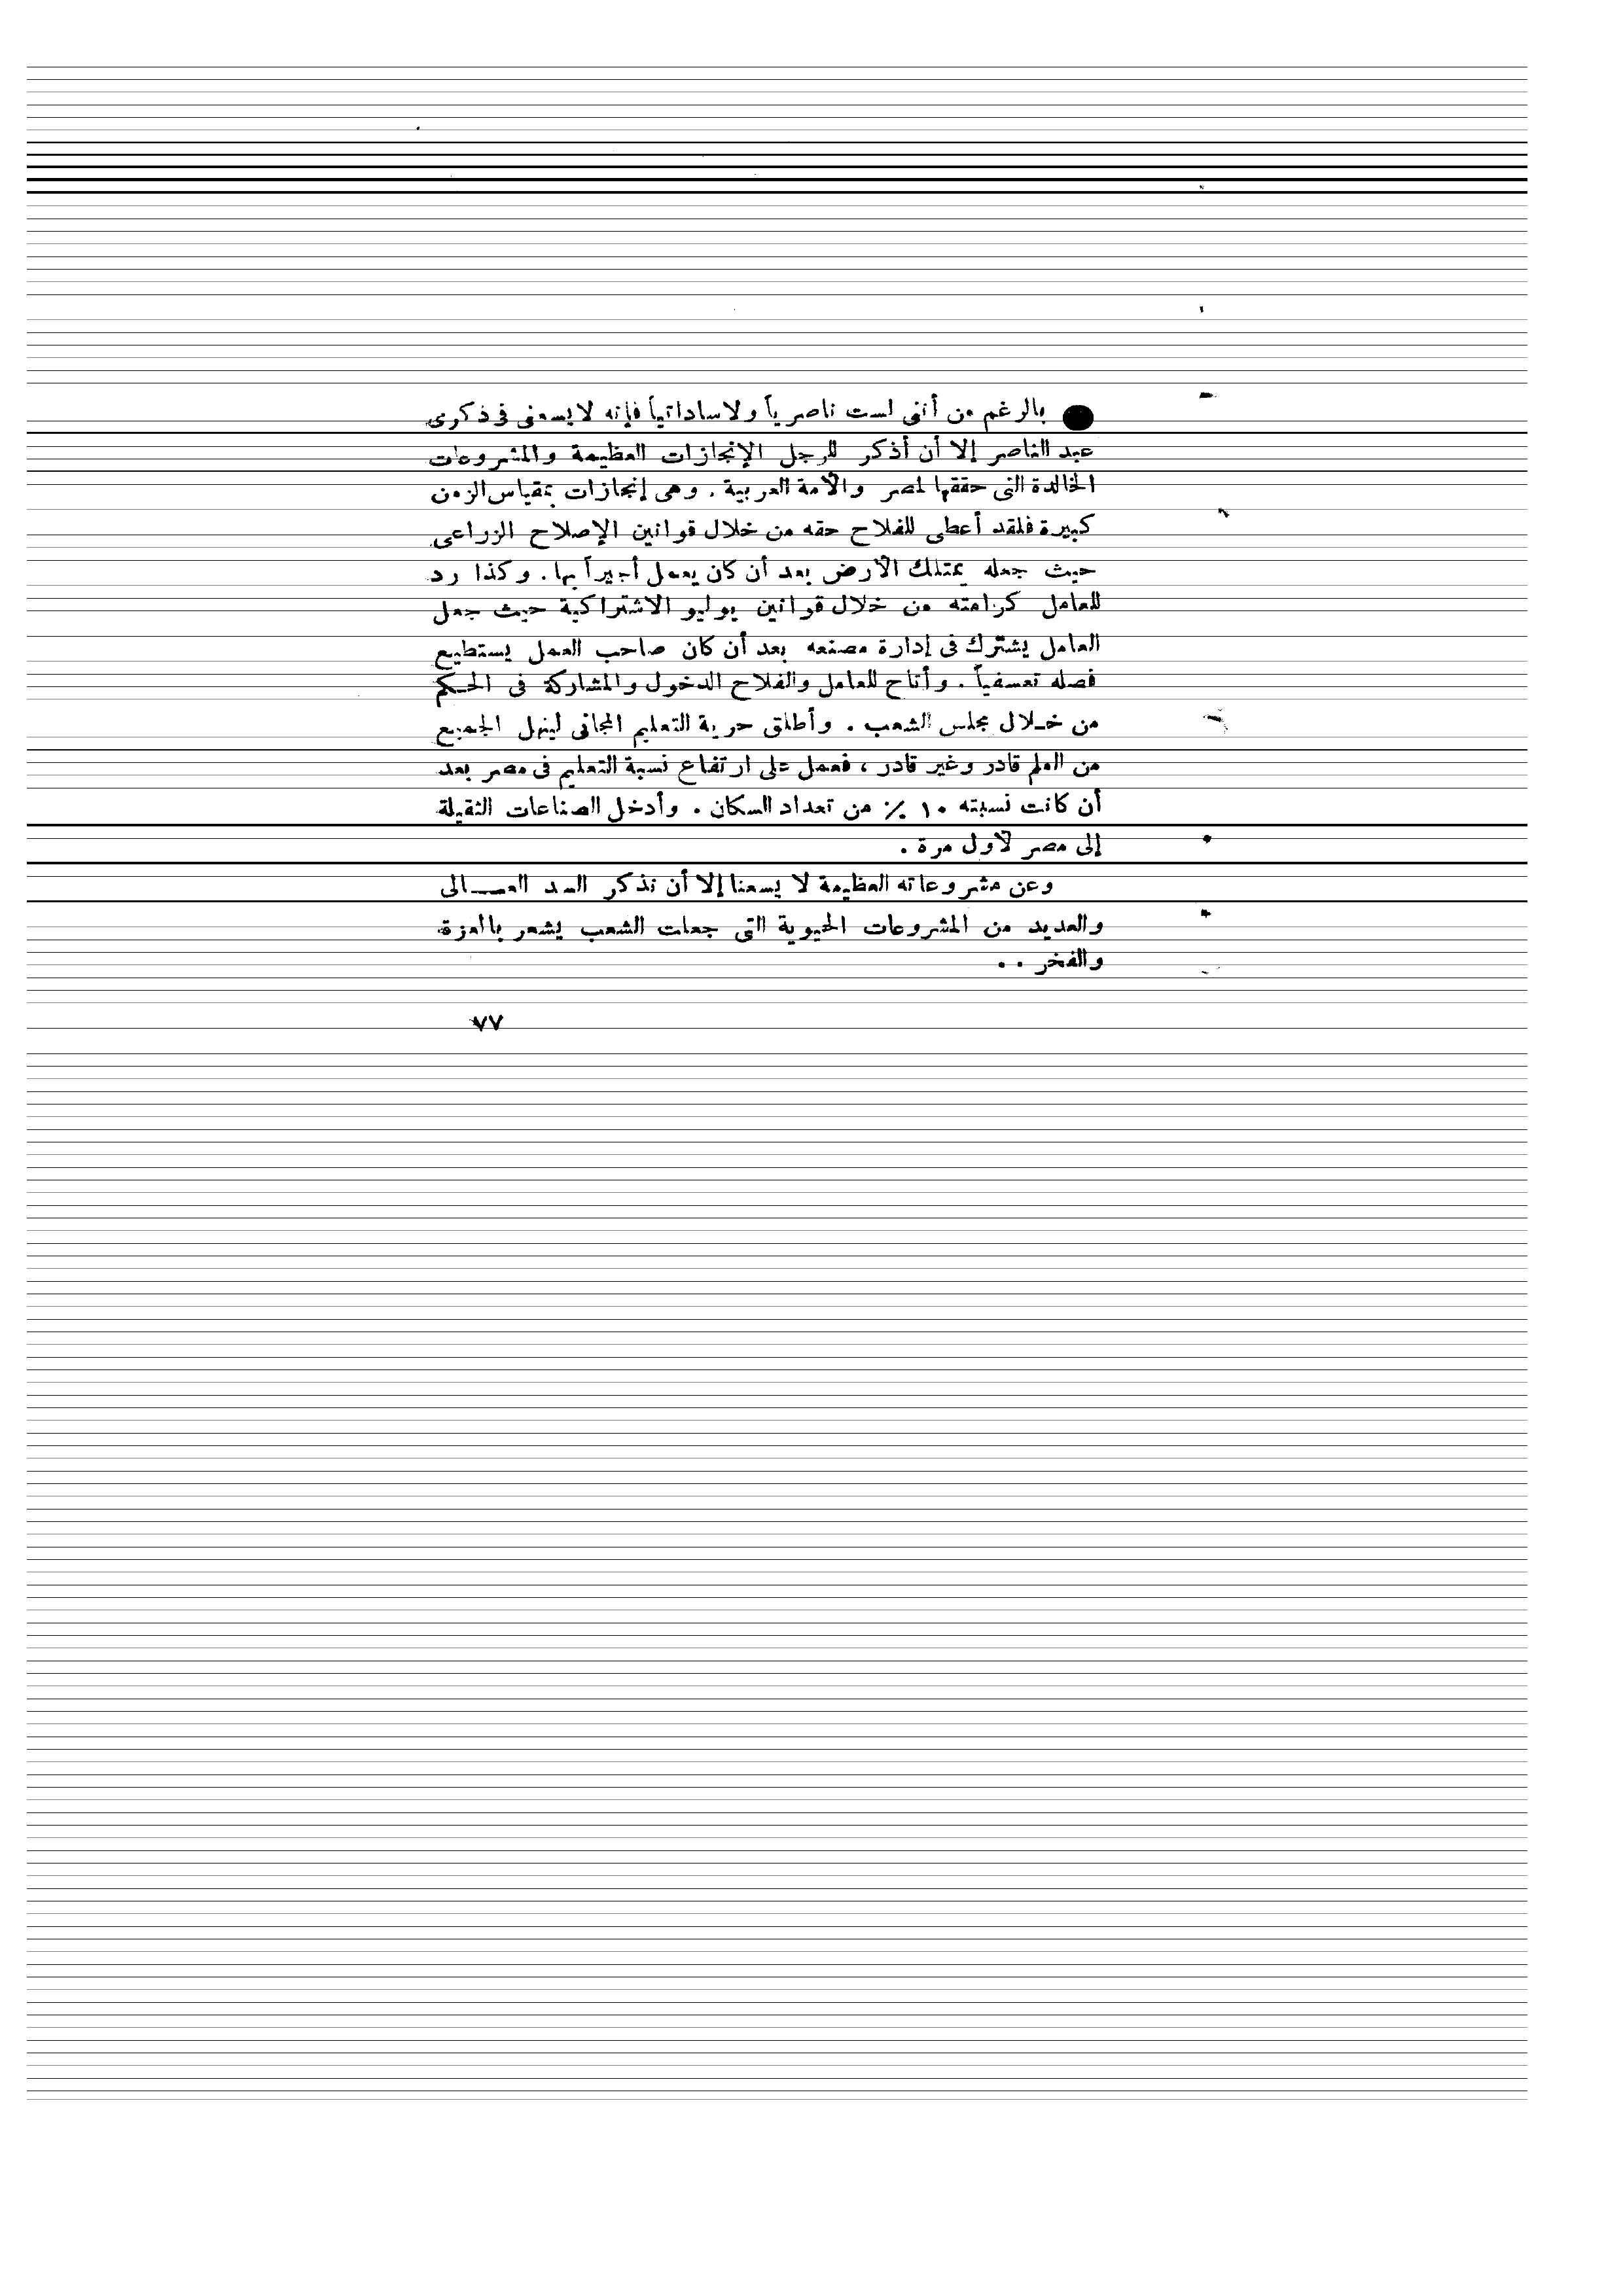 ● بالرغم من أننى لست ناصرياً ولا ساداتياً فإنه لا يسعنى فى ذكرى
عبد الناصر إلا أن أذكر للرجل الإنجازات العظيمة والمشروعات
الخالدة التى حققها لمصر والأمة العربية . وهى إنجازات بمقياس الزمن
كبيرة فلقد أعطى للفلاح حقه من خلال قوانين الإصلاح الزراعى
حيث جعله يمتلك الأرض بعد أن كان يعمل أجيراً بها . وكذا رد
للعامل كرامته من خلال قوانين يوليو الاشتراكية حيث جعل
العامل يشترك فى إدارة مصنعه بعد أن كان صاحب العمل يستطيع
فصله تعسفياً . وأتاح للعامل والفلاح الدخول والمشاركة فى الحكم
من خلال مجلس الشعب . وأطلق حرية التعليم المجانى لينهل الجميع
من العلم قادر وغير قادر ، فعمل على ارتفاع نسبة التعليم فى مصر بعد
أن كانت نسبته ١٠ ٪ من تعداد السكان . وأدخل الصناعات الثقيلة
إلى مصر لأول مرة .
وعن مشروعاته العظيمة لا يسعنا إلا أن نذكر السد العــالى
والعديد من المشروعات الحيوية التى جعلت الشعب يشعر بالعزة
والفخر . .
٧٧